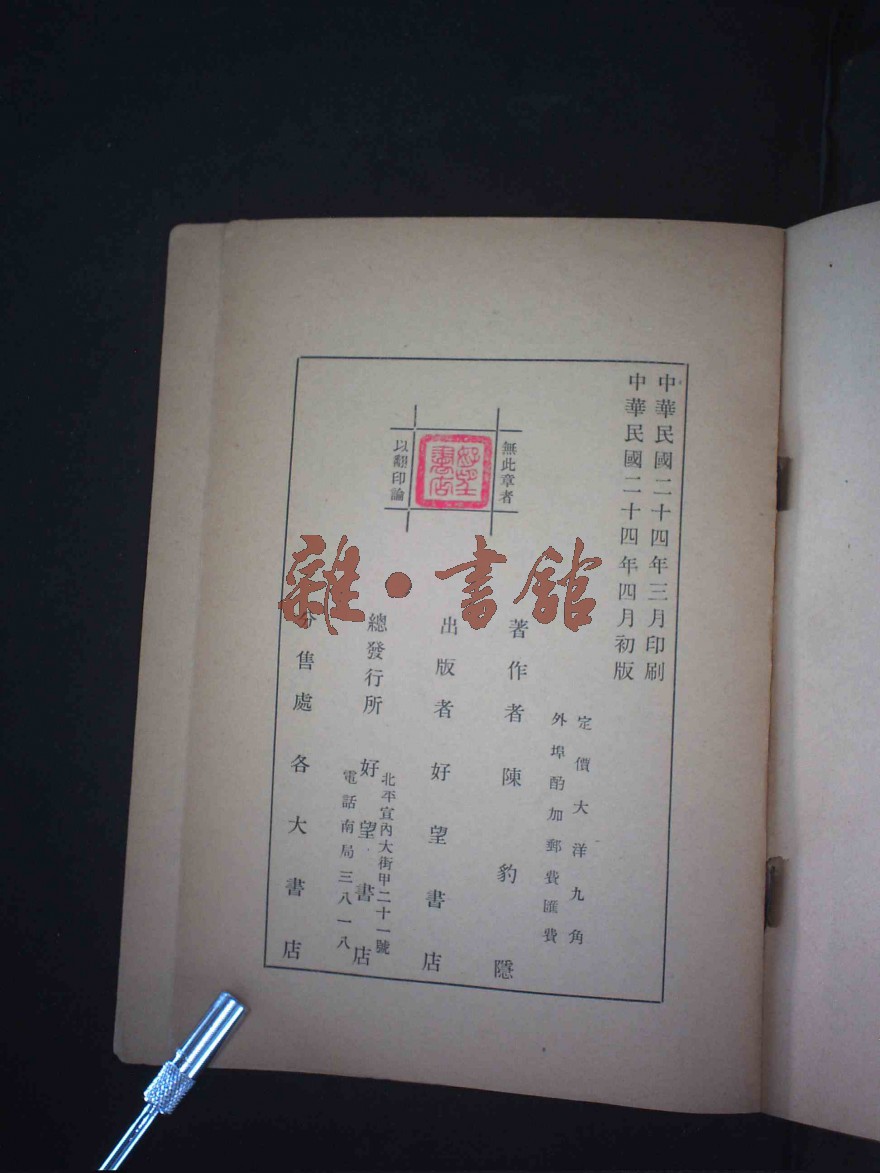 中華民國二十四年三月印刷
中華民國二十四年四月初版
定價大洋九角
外埠酌加郵費匯費
無此章者
好望書店
以翻印論
著作者陳豹隱
出版者好望書店
總發行所好望書店
北平宣內大街甲二十一號
電話南局三八一八
分售處各大書店
雜·書館